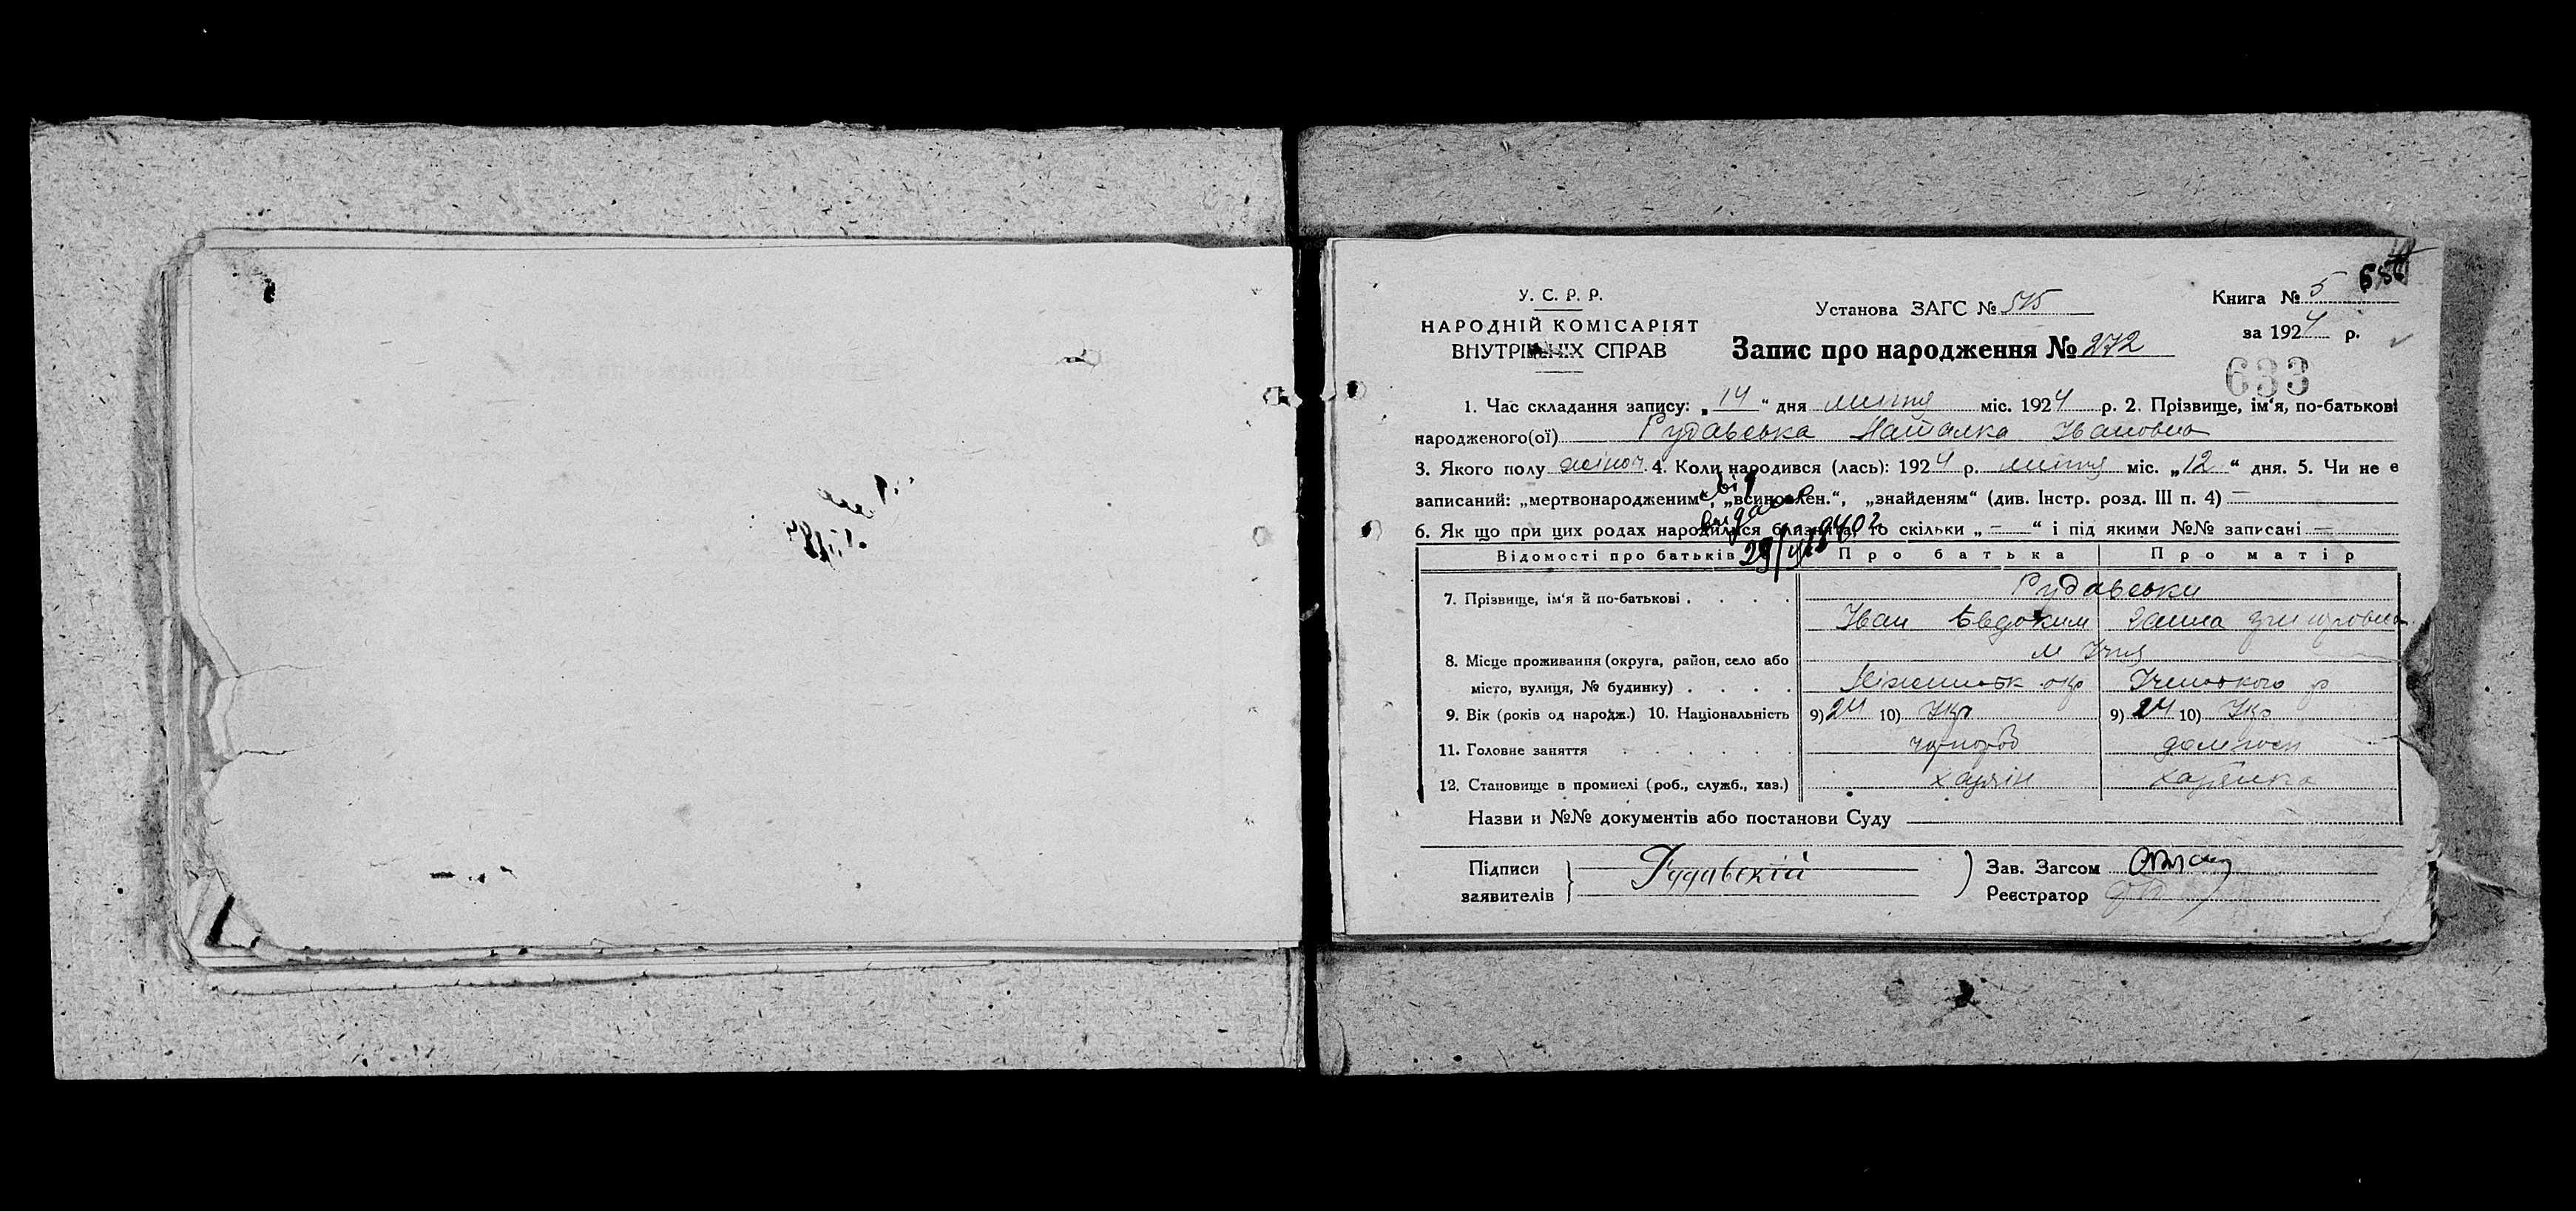 У. С. Р. Р.
НАРОДНІЙ КОМІСАРІЯТ
ВНУТРІШНІХ СПРАВ
Установа ЗАГС № 515
Запис про народження № 272
Книга № 5
за 1924 р.
633
1. Час складання запису: „14“ дня липня міс. 1924 р. 2. Прізвище, ім'я, по-батькові
народженого(ої) Рудавська Наталка Івановна
3. Якого полу жіноч. 4. Коли народився (лась): 1924 р. липня міс. „12“ дня. 5. Чи не є
записаний: „мертвонародженим“, „всиновлен.“, „знайденям“ (див. Інстр. розд. III п. 4) —
6. Як що при цих родах народилися близнята, то скільки „—“ і під якими №№ записані —
Відомості про батьків Про батька Про матір
7. Прізвище, ім'я й по-батькові . . . . Рудавськи
Іван Евдоким Ганна
8. Місце проживання (округа, район, село або м Ічня
місто, вулиця, № будинку) . . . . Ніжинськ окр Іченського р
9. Вік (років од народж.) 10. Національність 9) 24 10) Укр 9) 24 10) Укр
11. Головне заняття чорнороб домгосп
12. Становище в промислі (роб., служб., хаз.) хазяін хазяйка
Назви и №№ документів або постанови Суду
Підписи
заявителів
Рудавскій
Зав. Загсом
Реєстратор